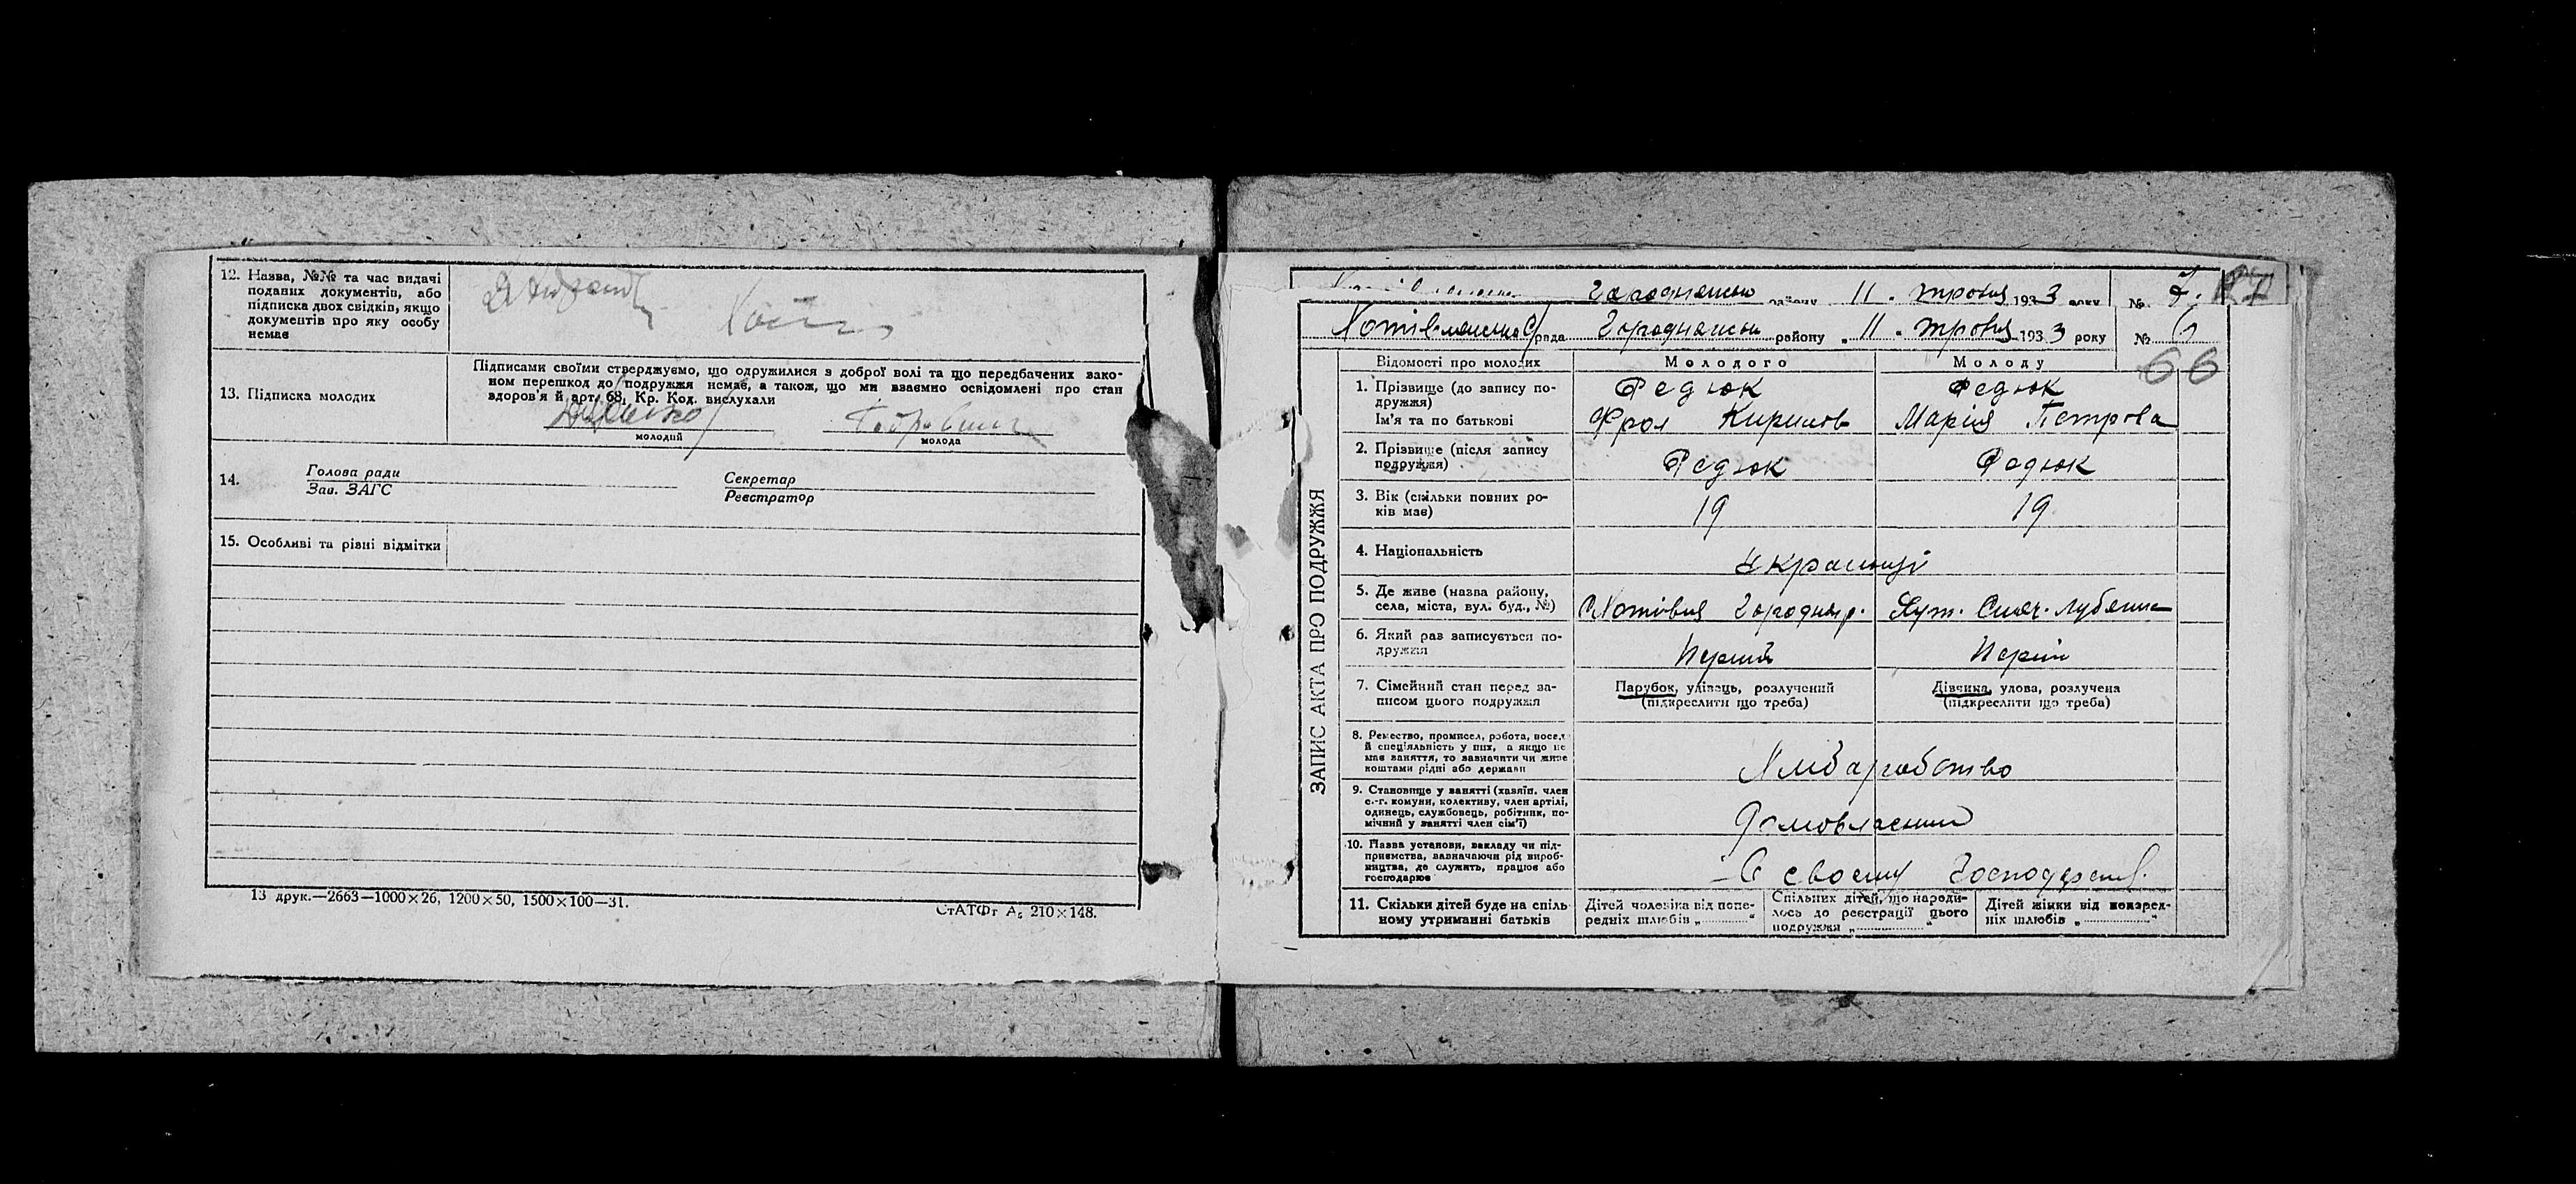 12. Назва, №№ та час видачі
поданих документів, або
підписка двох свідків, якщо
документів про яку особу
немає
13. Підписка молодих
Підписами своїми стверджуємо, що одружилися з доброї волі та що передбачених зако-
ном перешкод до подружжя немає, а також, що ми взаємно освідомлені про стан
здоров'я й арт. 68, Кр. Код. вислухали
молодий
молода
14.
Голова ради
Зав. ЗАГС
Секретар
Реєстратор
15. Особливі та різні відмітки
13 друк.—2663—1000×26, 1200×50, 1500×100—31.
СтАТФт А₅ 210×148.
району 11 . травня 1933 року № 7.
рада району „ 11 „ травня 1933 року № 6
66
ЗАПИС АКТА ПРО ПОДРУЖЖЯ
Відомості про молодих
Молодого
Молоду
1. Прізвище (до запису по-
дружжя)
Федюк
Федюк
Ім'я та по батькові
Фрол Кирилов
Марія Петрова
2. Прізвище (після запису
подружжя)
Федюк
Федюк
3. Вік (скільки повних ро-
ків має)
19
19
4. Національність
Українці
5. Де живе (назва району,
села, міста, вул. буд., №)
6. Який раз записується по-
дружжя
Перший
7. Сімейний стан перед за-
писом цього подружжя
Парубок, удівець, розлучений
(підкреслити що треба)
Дівчина, удова, розлучена
(підкреслити що треба)
8. Ремество, промисел, робота, посел
й спеціяльність у них, а якщо не
має заняття, то зазначити чи живе
коштами рідні або держави
Хліборобство
9. Становище у занятті (хазяїн. член
с.-г. комуни, колективу, член артілі,
одинець, службовець, робітник, по-
мічний у занятті член сім'ї)
10. Назва установи, закладу чи під-
приємства, зазначаючи рід вироб-
ництва, де служить, працює або
господарює
В своєму господарстві
11. Скільки дітей буде на спіль-
ному утриманні батьків
Дітей чоловіка від попе-
редніх шлюбів „ “
Спільних дітей, що народи-
лось до реєстрації цього
подружжя „ “
Дітей жінки від поперед-
ніх шлюбів „ “